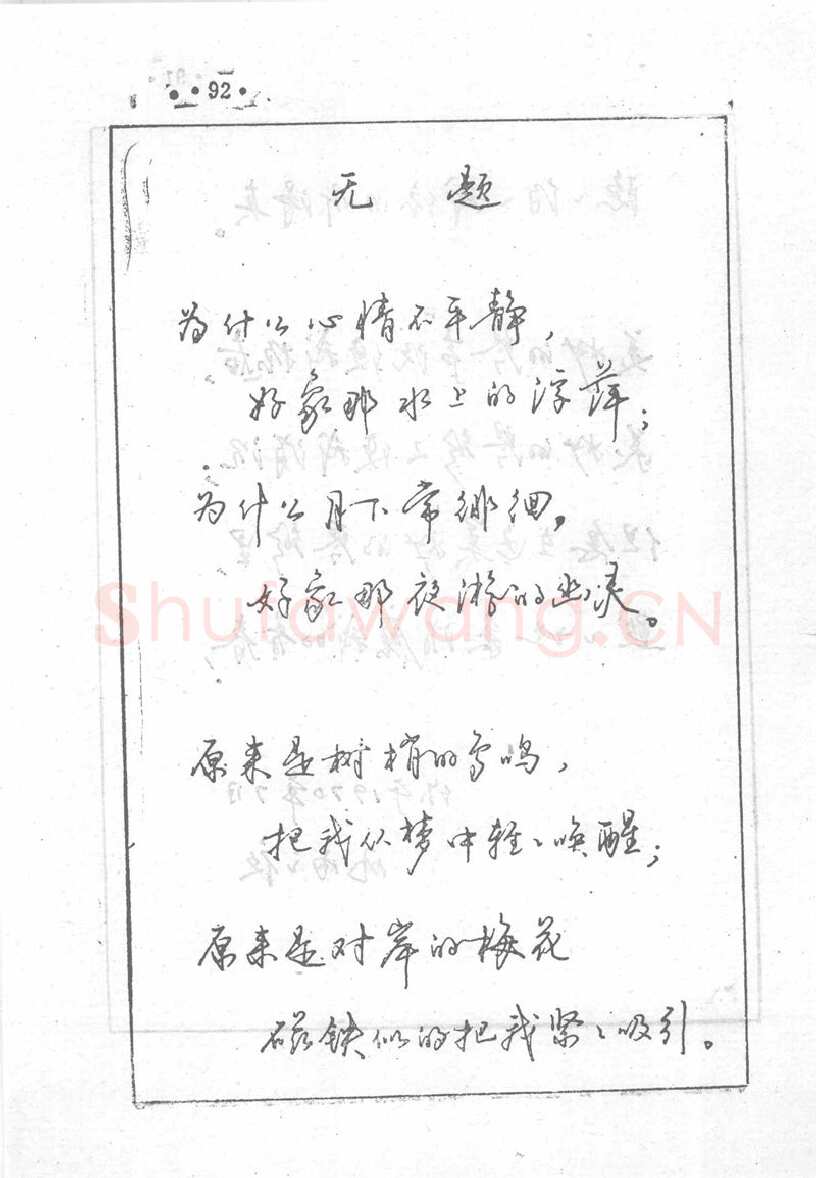 •• 92 •
无题
为什么心情不平静，
好象那水上的浮萍；
为什么月下常徘徊。
好象那夜游的幽灵。
Shufawang.CN
原来是树梢的鸟鸣，
把我从梦中轻〻唤醒；
原来是对岸的梅花
磁铁似的把我紧〻吸引。